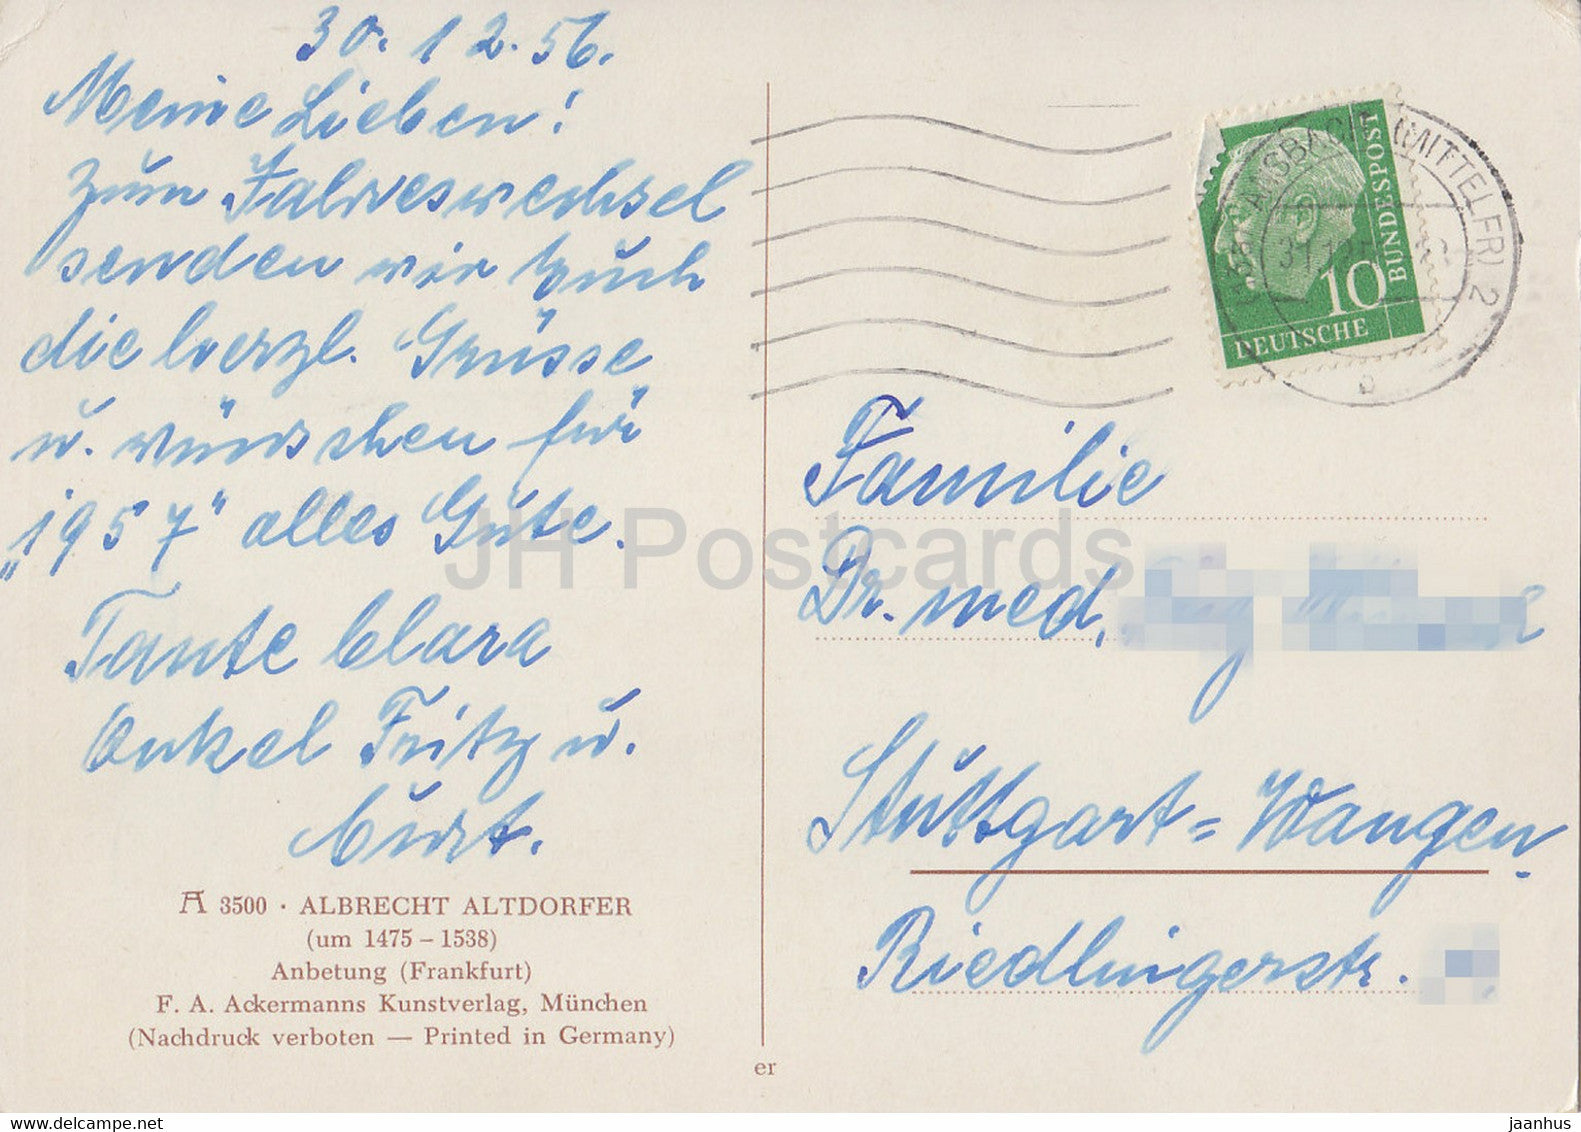 30. 12. 56.
Meine Lieben!
Zum Jahreswechsel
senden wir Euch
die herzl. Grüsse
u. wünschen für
„1957“ alles Gute.
Tante Clara
Onkel Fritz u.
Curt.
A 3500 · ALBRECHT ALTDORFER
(um 1475 – 1538)
Anbetung (Frankfurt)
F. A. Ackermanns Kunstverlag, München
(Nachdruck verboten — Printed in Germany)
er
ANSBACH (MITTELFR) 2
DEUTSCHE
BUNDESPOST
10
Familie
Dr. med.
Stuttgart=Wangen
Riedlingerstr.
JH Postcards
jaanhus